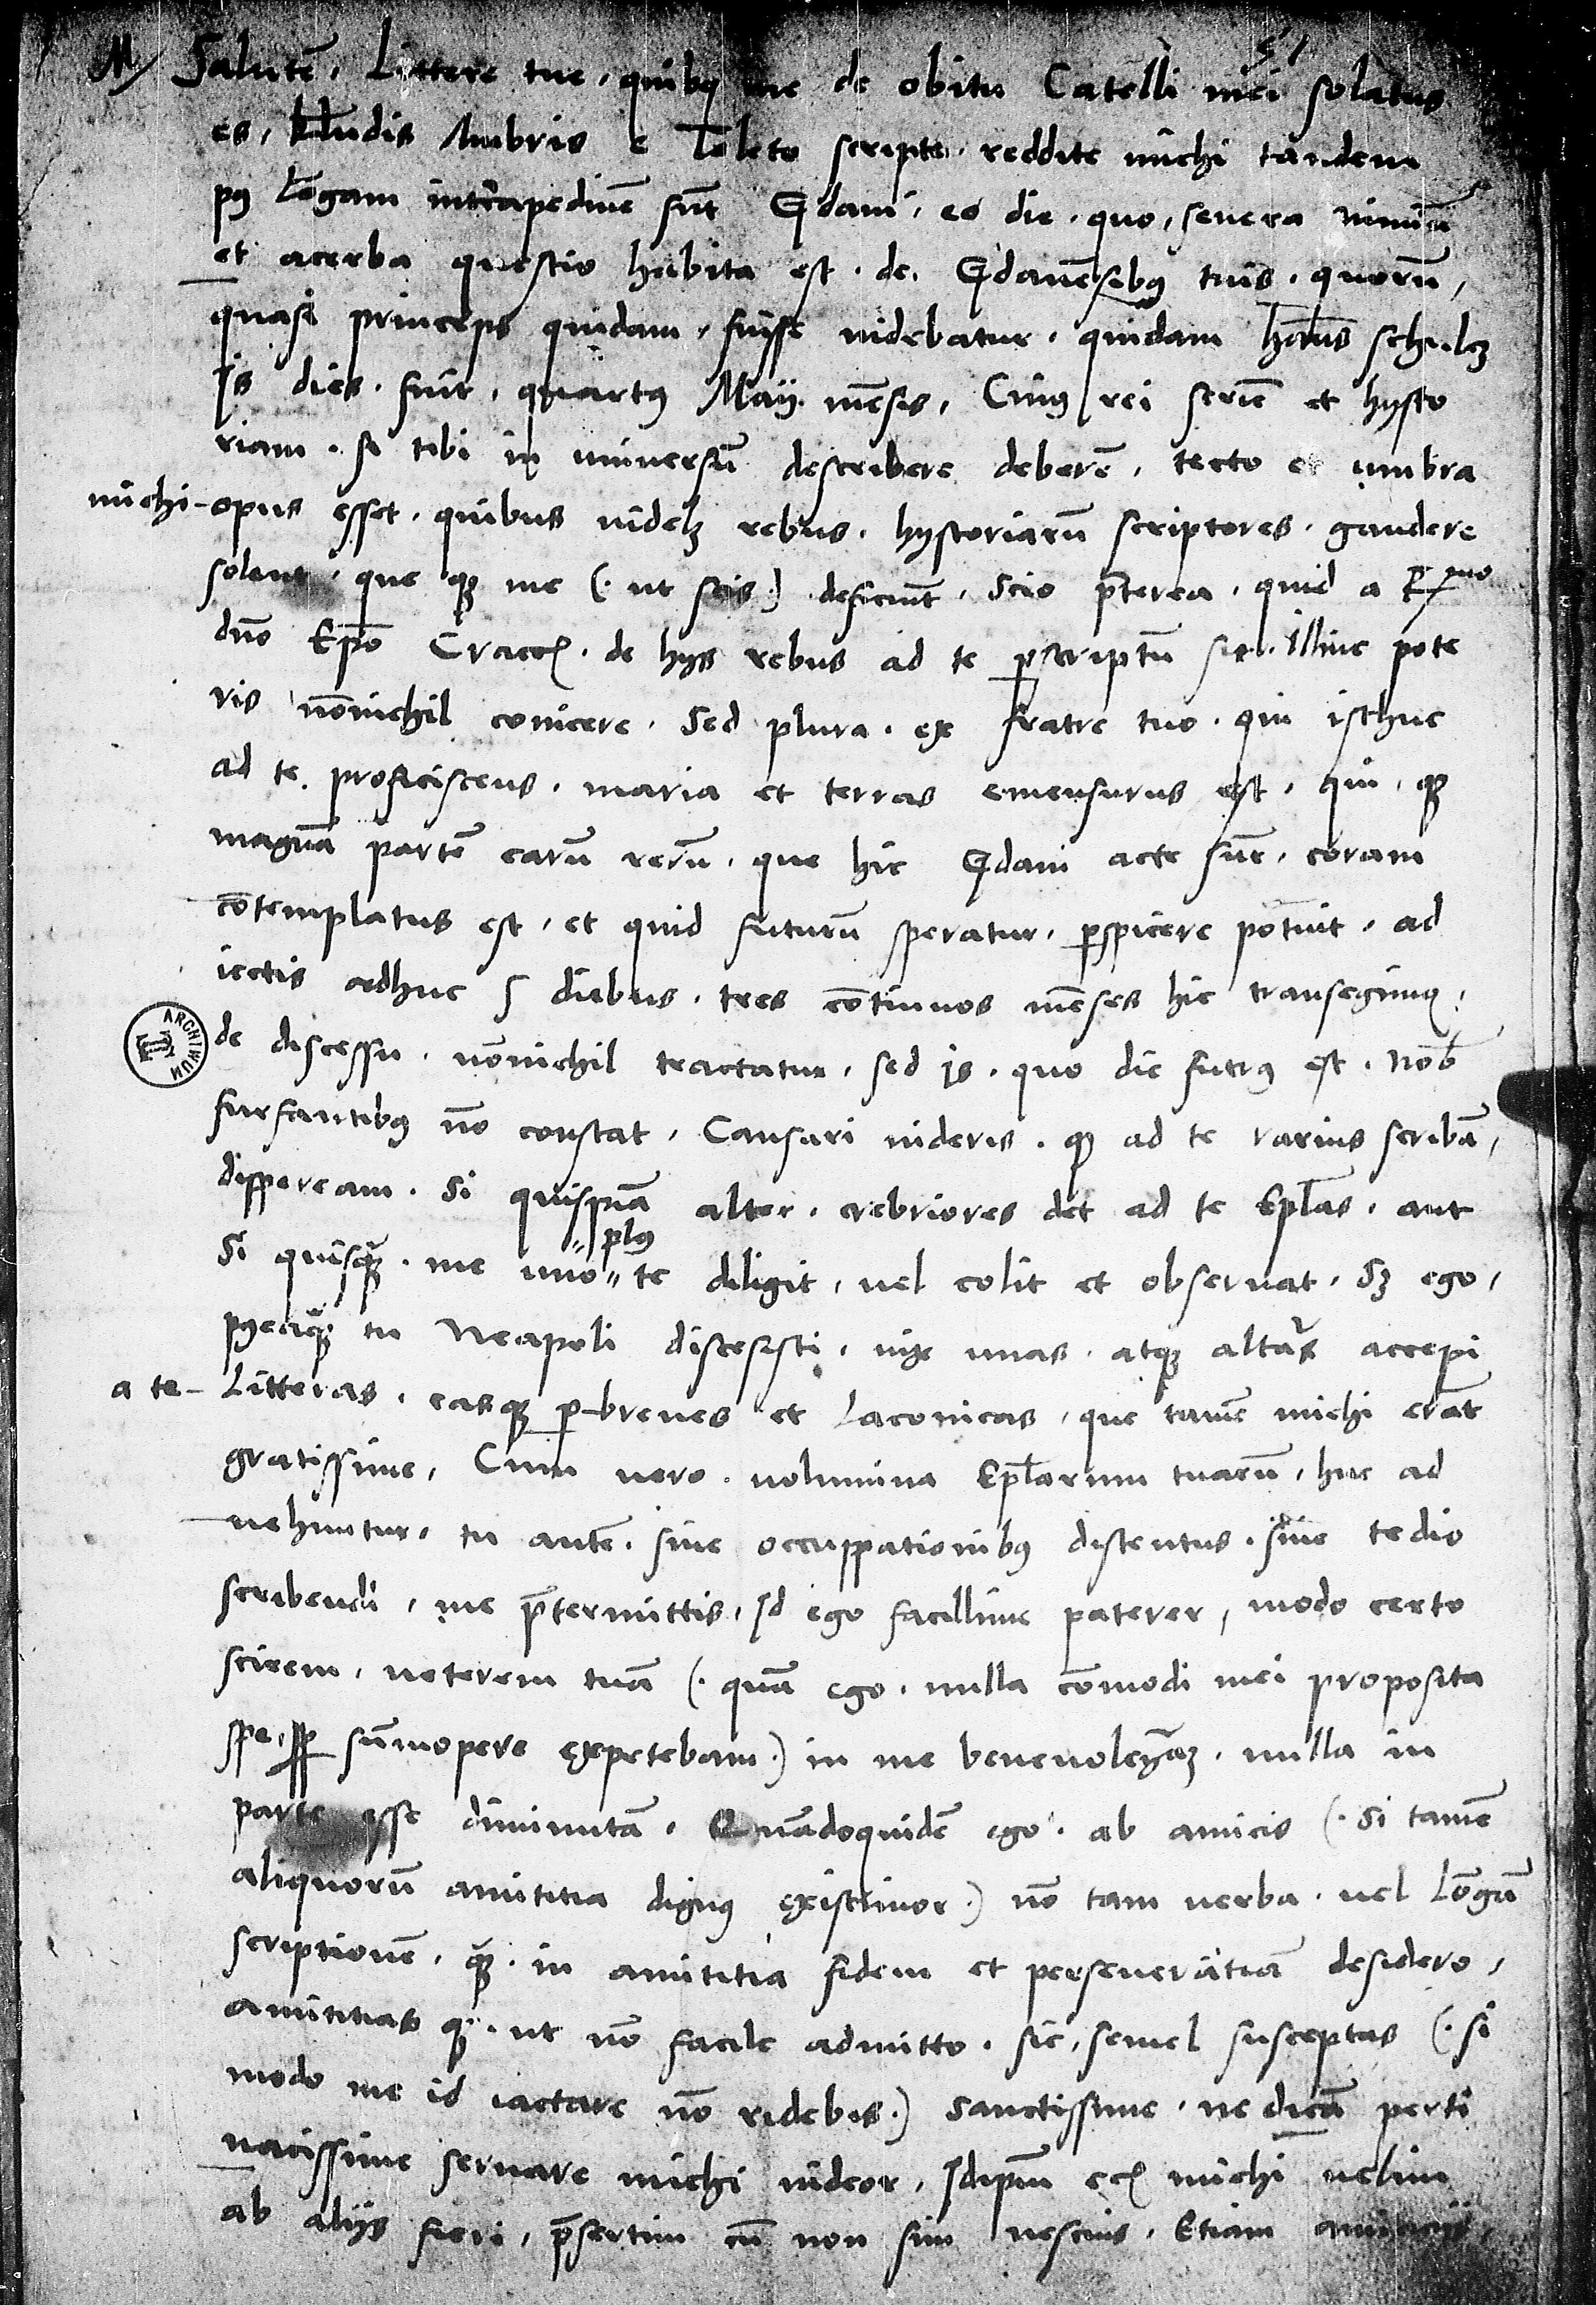 M Salutē. Littere tue, quibꝰ me de obitu Catelli mei solatus
es, kl̄endis Nubris e Toleto scripte, reddite michi tandem
pꝰ Lōgam intrapedinē sūt Gdani, eo die, quo, severa nimiū
et acerba questio habita est, de Gdanēsibꝰ tuis, quorū,
quasi princeps quidam, fuisse videbatur, quidam Hānus schulcz
Is dies, fuit, quartꝰ Maii mēsis, Cuiꝰ rei seriē et hysto
riam, si tibi in universū describere deberē, tecto et umbra
michi - opus esset, quibus videlꝫ rebus, hystoriarū scriptores, gaudere
solent, que qꝫ me (ut scis) deficiūt, Scio p̄terea, quid a R mo
dn̄o Ep̄o Cracoꝭ. de hys rebus ad te ꝑscriptū sit. illinc pote
ris nōnichil conicere. Sed plura, ex fratre tuo, qui isthuc
ad te proficiscens, maria et terras emensurus est, qui, qꝫ
magnā partē earū rerū, que hic Gdani acte sūt, coram
cōtemplatus est, et quid futurū speratur, ꝑspicere potuit, ad
iectis adhuc 5 diebus, tres cōtinuos mēses hic transegimꝰ,
de discessu, nōnichil tractatur, sed is, quo die futurꝰ est, nob̄
furfantibꝰ nō constat, Causari videris, qꝫ ad te rarius scribā,
dispeream, Si quispiā alter, crebriores det ad te Epl̄as, aut
Si quisqꝫ, me uno " plꝰ " te diligit, vel colit et observat, Sꝫ ego,
pꝰeaqꝫ tu Neapoli discesisti, vix unas, atqꝫ altās accepi
a te - Litteras, easqꝫ ꝑbreves et Laconicas, que tamē michi erāt
gratissime, Cum vero, volumina Epl̄arum tuarū, huc ad
vehuntur, tu autē, sive occuppationibꝰ distentus, sive tedio
scribendi, me p̄termittis, Id ego facillime paterer, modo certo
scirem, veterem tuā (quā ego, nulla cōmodi mei proposita
spe, sp̄ sūmopere expetebam) in me benevolēciāꝫ, nulla in
parte esse diminutā, Quādoquidē ego, ab amicis (Si tamē
aliquorū amititia dignꝰ existimor) nō tam verba, vel Lōgā
scriptionē, qꝫ, in amititia fidem et perseverātiā desidero,
amititias qꝫ, ut nō facile admitto, sic, semel susceptas (si
modo me id iactare nō ridebis) sanctissime, ne dicā perti
nacissime servare michi videor, Idipm̄ ecꝭ michi velim
ab aliis fieri, p̄sertim cū non sim nescius, Etiam
ARCHIWUM